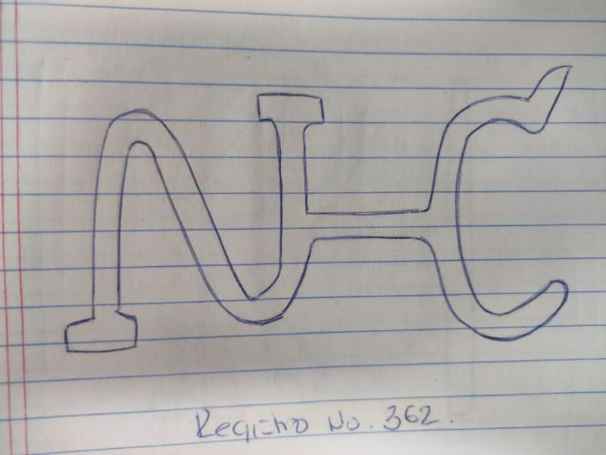 NC
Registro No. 362.